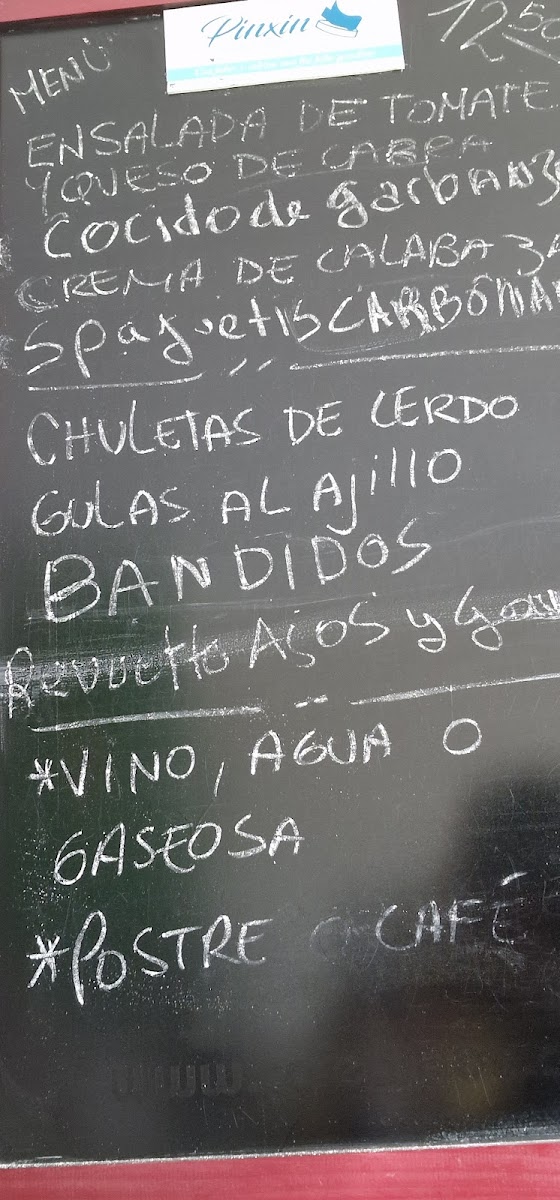 Pinxin
12'50
MENÚ
ENSALADA DE TOMATE
Y QUESO DE CABRA
Cocido de garbanzo
CREMA DE CALABAZA
SpaguetiS CARBONA
CHULETAS DE CERDO
GULAS AL AJillO
BANDIDOS
Revuelto AJOS y Gam
*VINO, AGUA O
GASEOSA
*POSTRE CAFÉ